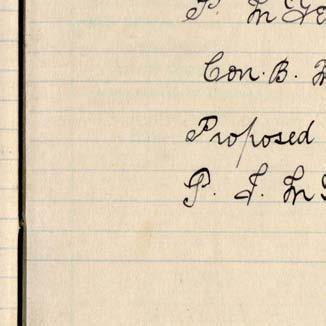 P. McG
Con. B.
Proposed
P. J. McG